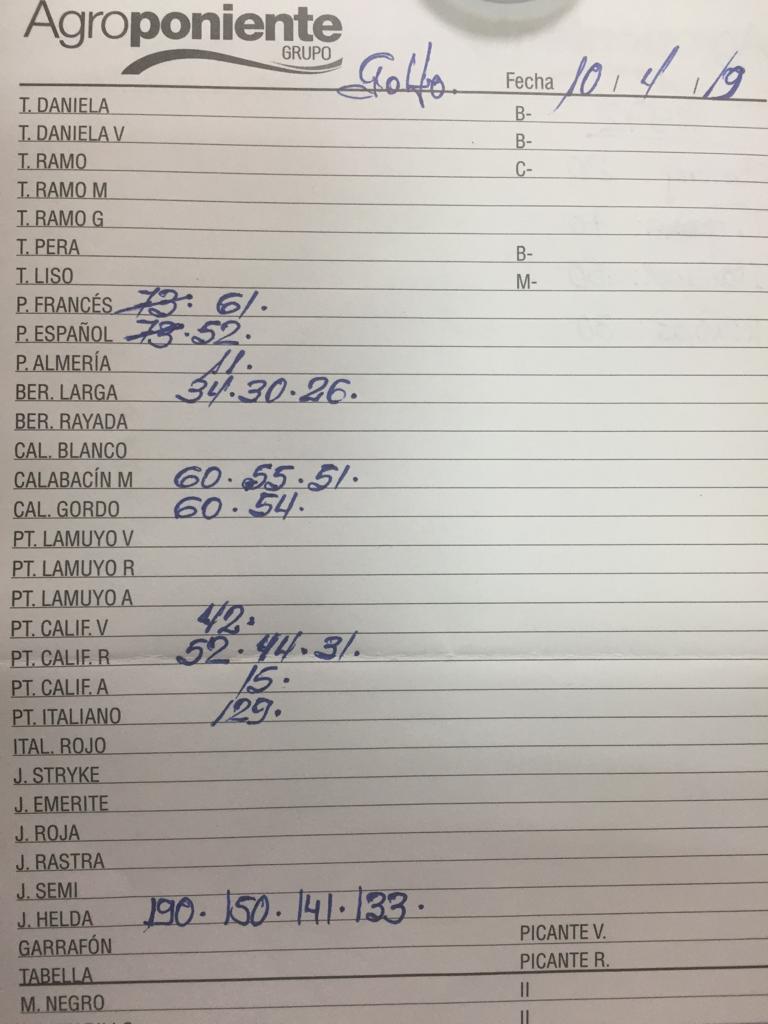 Agroponiente
GRUPO
Golfo. Fecha 10, 4, 19
T. DANIELA B-
T. DANIELA V B-
T. RAMO C-
T. RAMO M
T. RAMO G
T. PERA B-
T. LISO M-
P. FRANCÉS 73· 61.
P. ESPAÑOL 73·52.
P. ALMERÍA 11.
BER. LARGA 34·30·26.
BER. RAYADA
CAL. BLANCO
CALABACÍN M 60·55·51.
CAL. GORDO 60·54.
PT. LAMUYO V
PT. LAMUYO R
PT. LAMUYO A
PT. CALIF. V 42.
PT. CALIF. R 52·44·31.
PT. CALIF. A 15.
PT. ITALIANO 129.
ITAL. ROJO
J. STRYKE
J. EMERITE
J. ROJA
J. RASTRA
J. SEMI
J. HELDA 190·150·141·133.
GARRAFÓN PICANTE V.
TABELLA PICANTE R.
M. NEGRO II
II